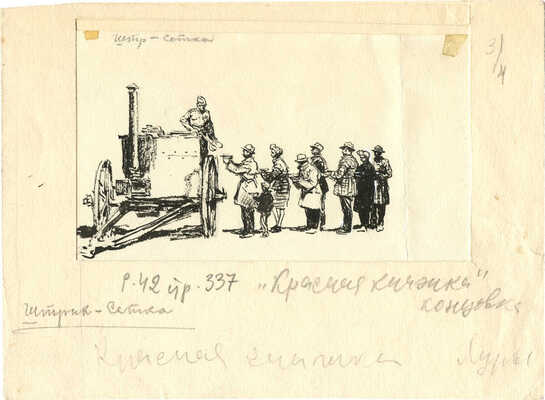 штр-сетка
3/4
р. 42 стр. 337 "Красная книжка"
концовка
Штрих-сетка
Красная книжка